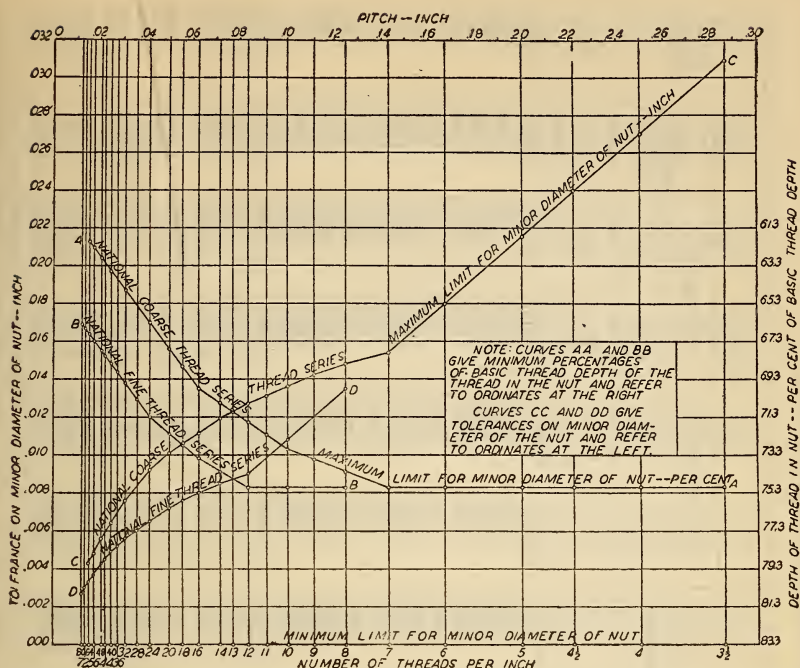 PITCH -- INCH
0 .02 .04 .06 .08 .10 .12 .14 .16 .18 .20 .22 .24 .26 .28 .30
.032
.030
.028
.026
.024
.022
.020
.018
.016
.014
.012
.010
.008
.006
.004
.002
.000
TOLERANCE ON MINOR DIAMETER OF NUT -- INCH
61.3
63.3
65.3
67.3
69.3
71.3
73.3
75.3
77.3
79.3
81.3
83.3
DEPTH OF THREAD IN NUT -- PER CENT OF BASIC THREAD DEPTH
A
NATIONAL COARSE THREAD SERIES
B
NATIONAL FINE THREAD SERIES
C
NATIONAL COARSE THREAD SERIES
D
NATIONAL FINE THREAD SERIES
MAXIMUM LIMIT FOR MINOR DIAMETER OF NUT -- INCH
C
D
B
MAXIMUM LIMIT FOR MINOR DIAMETER OF NUT -- PER CENT
A
NOTE: CURVES AA AND BB
GIVE MINIMUM PERCENTAGES
OF BASIC THREAD DEPTH OF THE
THREAD IN THE NUT AND REFER
TO ORDINATES AT THE RIGHT
CURVES CC AND DD GIVE
TOLERANCES ON MINOR DIAM-
ETER OF THE NUT AND REFER
TO ORDINATES AT THE LEFT.
MINIMUM LIMIT FOR MINOR DIAMETER OF NUT
80 64 48 40 32 28 24 20 18 16 14 13 12 11 10 9 8 7 6 5 4½ 4 3½
72 56 44 36
NUMBER OF THREADS PER INCH